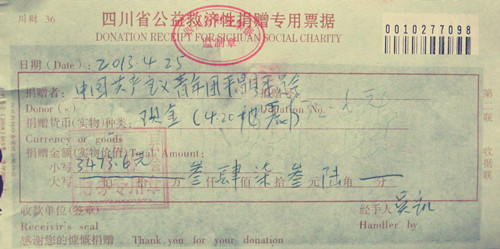 川财 36
四川省公益救济性捐赠专用票据
DONATION RECEIPT FOR SICHUAN SOCIAL CHARITY
监制章
0010277098
日期 (Date): 2013 4 25
捐赠者: 中国共产主义青年团
Donor (s)
Donation No.
捐赠货币(实物)种类: 现金 (4.20地震)
Currency or goods
捐赠金额(实物价值) Total Amount:
小写 3473.6元
大写 仟 佰 拾 万 叁仟肆佰柒拾叁元陆角 分
财务专用章
收款单位(签章)
Receiver's seal
经手人
Handler
感谢您的慷慨捐赠 Thank you for your donation
第 联
收据联